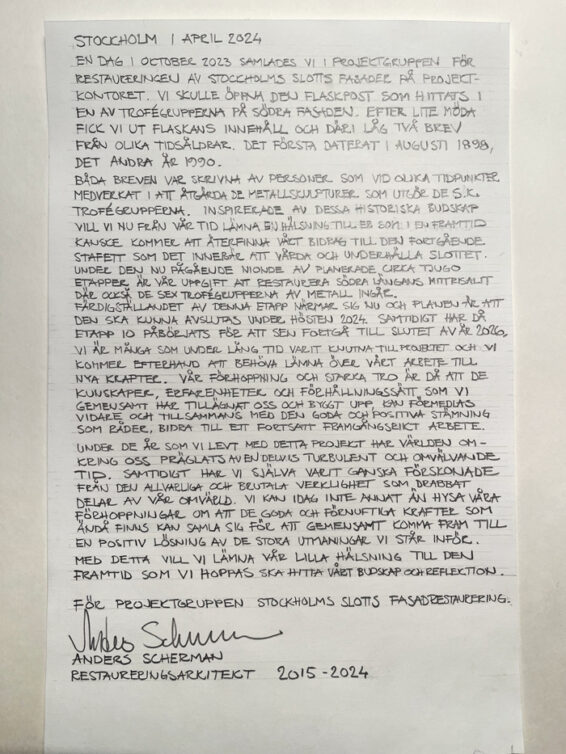 STOCKHOLM 1 APRIL 2024
EN DAG I OCTOBER 2023 SAMLADES VI I PROJEKTGRUPPEN FÖR
RESTAURERINGEN AV STOCKHOLMS SLOTTS FASADER PÅ PROJEKT-
KONTORET. VI SKULLE ÖPPNA DEN FLASKPOST SOM HITTATS I
EN AV TROFÉGRUPPERNA PÅ SÖDRA FASADEN. EFTER LITE MÖDA
FICK VI UT FLASKANS INNEHÅLL OCH DÄRI LÅG TVÅ BREV
FRÅN OLIKA TIDSÅLDRAR. DET FÖRSTA DATERAT I AUGUSTI 1898,
DET ANDRA ÅR 1990.
BÅDA BREVEN VAR SKRIVNA AV PERSONER SOM VID OLIKA TIDPUNKTER
MEDVERKAT I ATT ÅTGÄRDA DE METALLSKULTURER SOM UTGÖR DE S.K.
TROFÉGRUPPERNA. INSPIRERADE AV DESSA HISTORISKA BUDSKAP
VILL VI NU FRÅN VÅR TID LÄMNA EN HÄLSNING TILL ER SOM I EN FRAMTID
KANSKE KOMMER ATT ÅTERFINNA VÅRT BIDRAG TILL DEN FORTGÅENDE
STAFETT SOM DET INNEBÄR ATT VÅRDA OCH UNDERHÅLLA SLOTTET.
UNDER DEN NU PÅGÅENDE NIONDE AV PLANERADE CIRKA TJUGO
ETAPPER ÄR VÅR UPPGIFT ATT RESTAURERA SÖDRA LÄNGANS MITTRISALIT
DÄR OCKSÅ DE SEX TROFÉGRUPPERNA AV METALL INGÅR.
FÄRDIGSTÄLLANDET AV DENNA ETAPP NÄRMAR SIG NU OCH PLANEN ÄR ATT
DEN SKA KUNNA AVSLUTAS UNDER HÖSTEN 2024. SAMTIDIGT HAR DÅ
ETAPP 10 PÅBÖRJATS FÖR ATT SEN FORTGÅ TILL SLUTET AV ÅR 2026.
VI ÄR MÅNGA SOM UNDER LÅNG TID VARIT KNUTNA TILL PROJEKTET OCH VI
KOMMER EFTERHAND ATT BEHÖVA LÄMNA ÖVER VÅRT ARBETE TILL
NYA KRAFTER. VÅR FÖRHOPPNING OCH STARKA TRO ÄR DÅ ATT DE
KUNSKAPER, ERFARENHETER OCH FÖRHÅLLNINGSSÄTT SOM VI
GEMENSAMT HAR TILLÄGNAT OSS OCH BYGGT UPP, KAN FÖRMEDLAS
VIDARE OCH TILLSAMMANS MED DEN GODA OCH POSITIVA STÄMNING
SOM RÅDER, BIDRA TILL ETT FORTSATT FRAMGÅNGSRIKT ARBETE.
UNDER DE ÅR SOM VI LEVT MED DETTA PROJECT HAR VÄRLDEN OM-
KRING OSS PRÄGLATS AV EN DELVIS TURBULENT OCH OMVÄLVANDE
TID. SAMTIDIGT HAR VI SJÄLVA VARIT GANSKA FÖRSKONADE
FRÅN DEN ALLVARLIGA OCH BRUTALA VERKLIGHET SOM DRABBAT
DELAR AV VÅR OMVÄRLD. VI KAN IDAG INTE ANNAT ÄN HYSA VÅRA
FÖRHOPPNINGAR OM ATT DE GODA OCH FÖRNUFTIGA KRAFTER SOM
ÄNDÅ FINNS KAN SAMLA SIG FÖR ATT GEMENSAMT KOMMA FRAM TILL
EN POSITIV LÖSNING AV DE STORA UTMANINGAR VI STÅR INFÖR.
MED DETTA VILL VI LÄMNA VÅR LILLA HÄLSNING TILL DEN
FRAMTID SOM VI HOPPAS SKA HITTA VÅRT BUDSKAP OCH REFLEKTION.
FÖR PROJEKTGRUPPEN STOCKHOLMS SLOTTS FASADRESTAURERING.
Anders Scherman
ANDERS SCHERMAN
RESTAURERINGSARKITEKT 2015-2024